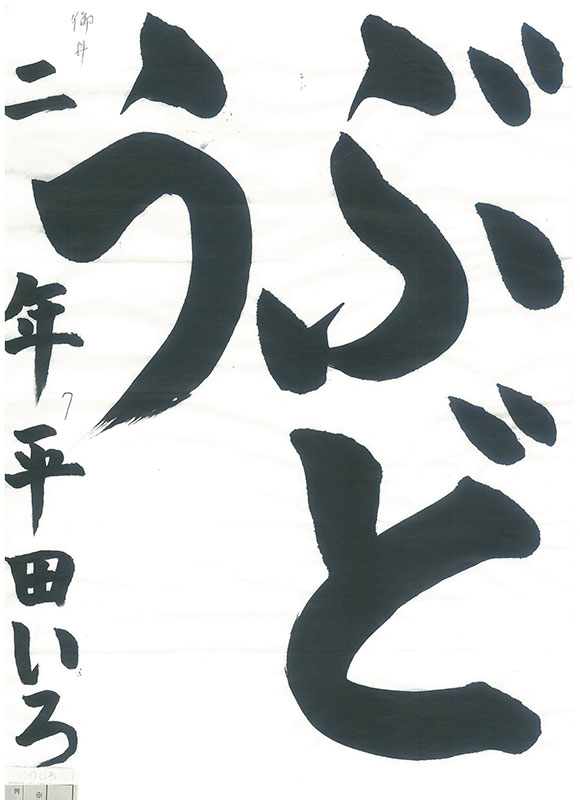 ぶど
う
二年平田いろ
御井
例 ※